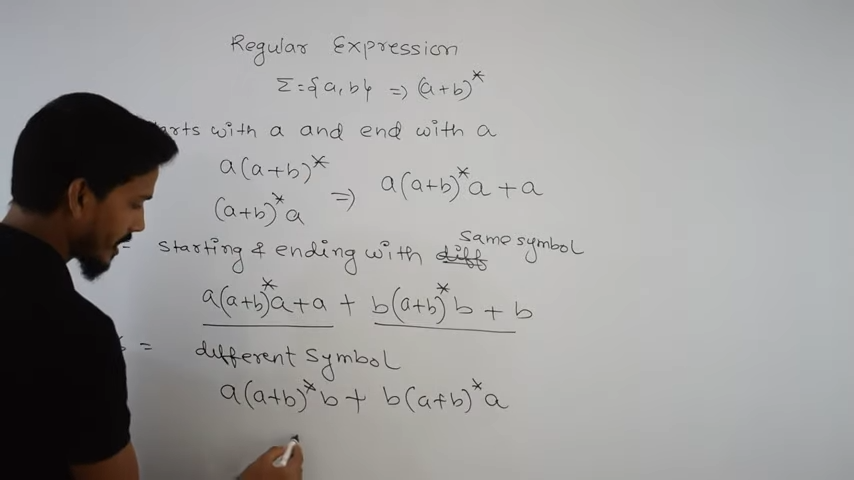 Regular Expression
Σ={a,b} => (a+b)*
arts with a and end with a
a(a+b)*
(a+b)*a => a(a+b)*a + a
- starting & ending with diff same symbol
a(a+b)*a+a + b(a+b)*b + b
= different symbol
a(a+b)*b + b(a+b)*a